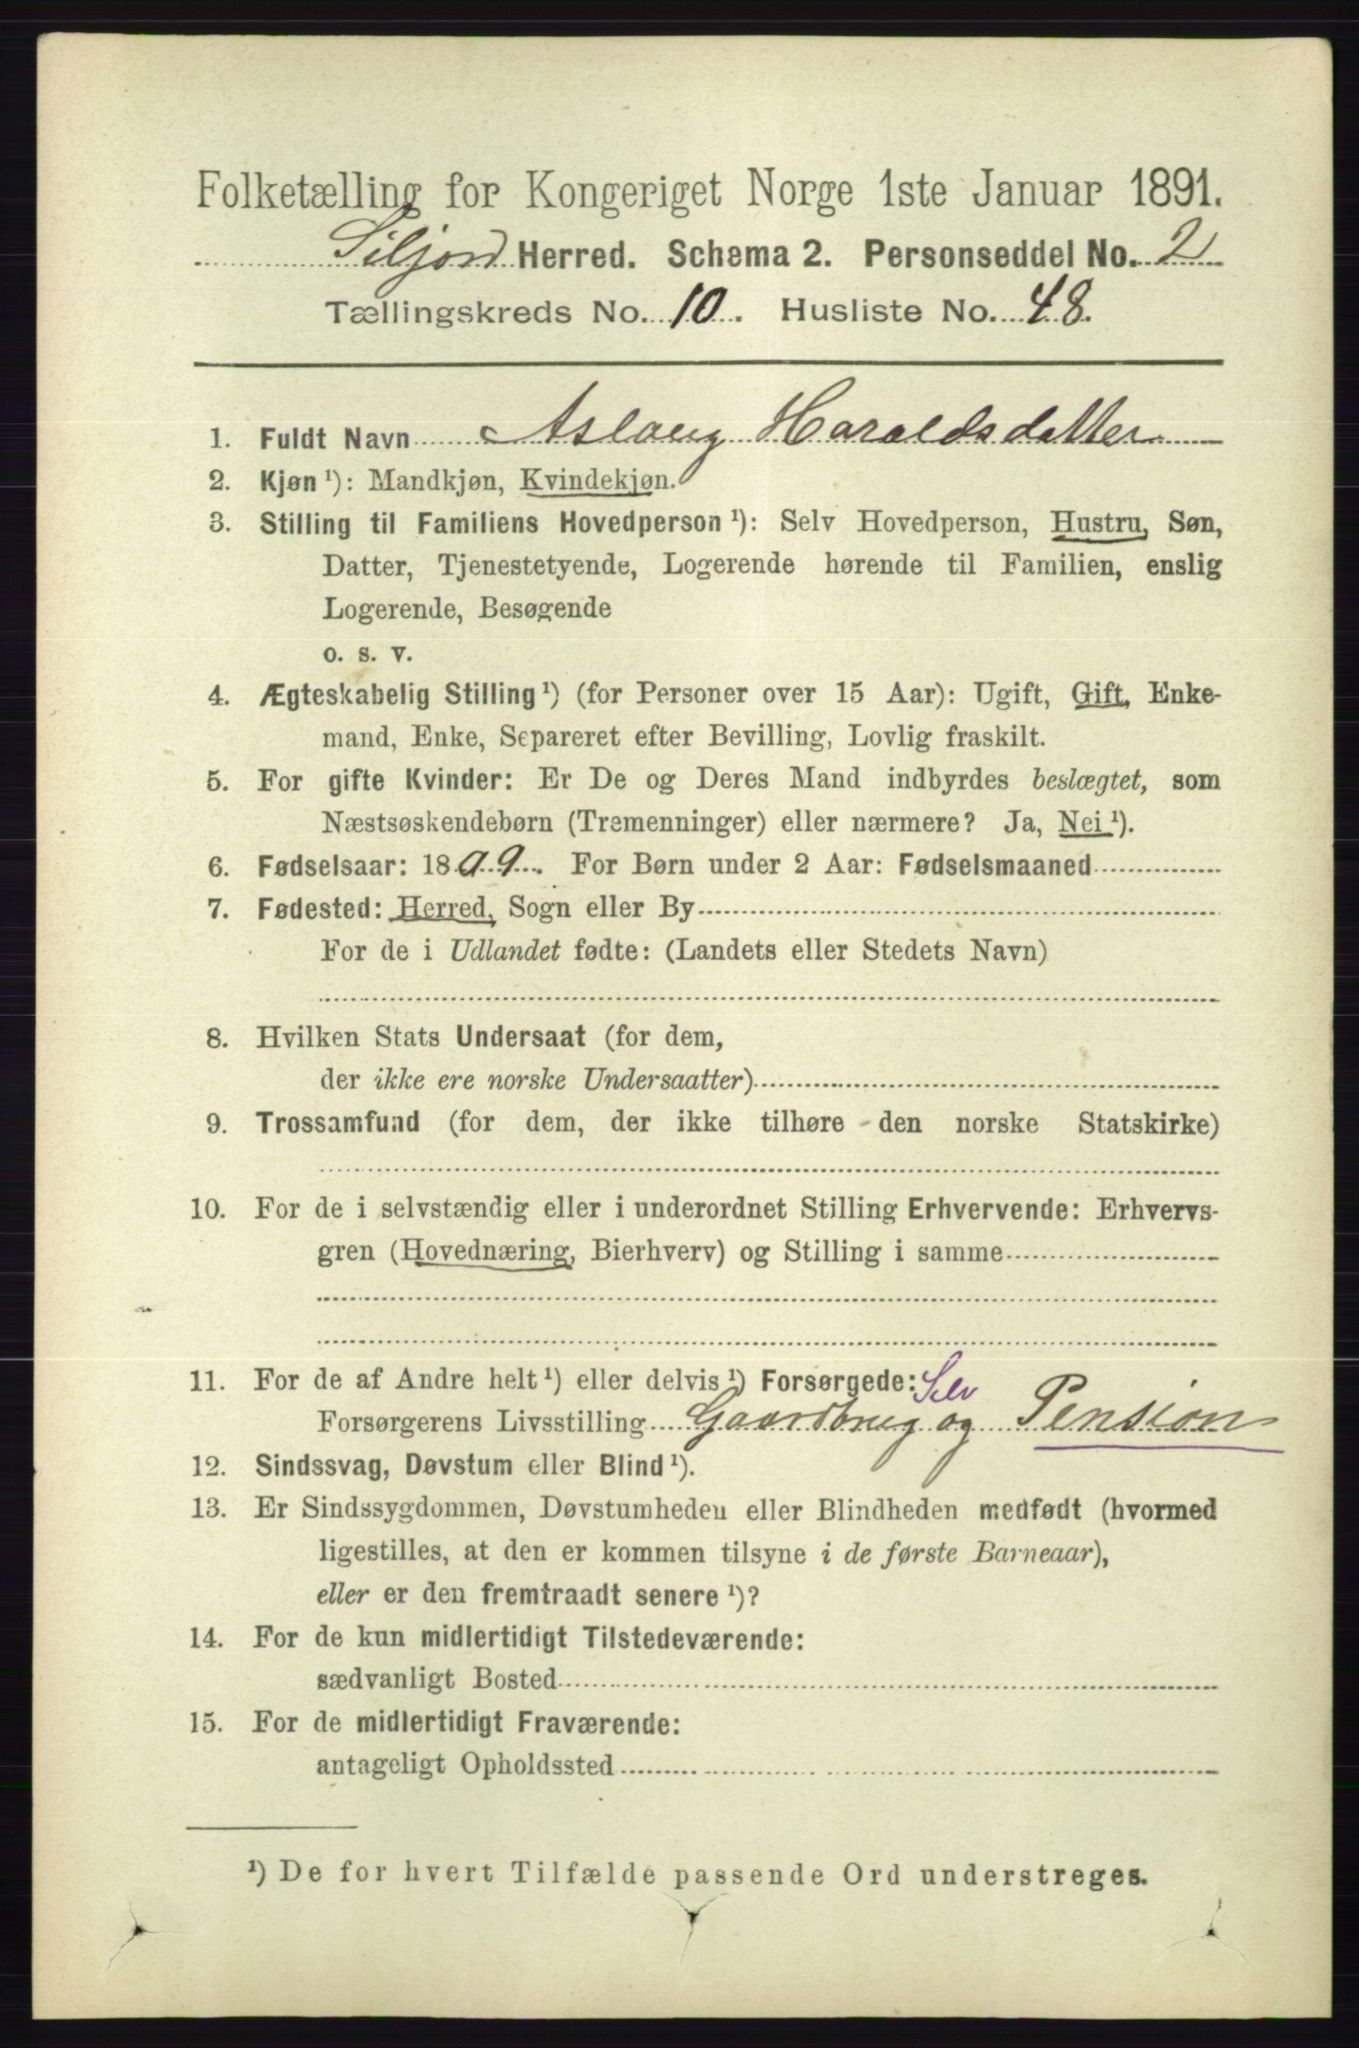 Folketælling for Kongeriget Norge 1ste Januar 1891.
Siljord Herred. Schema 2. Personseddel No. 2
Tællingskreds No. 10. Husliste No. 48.
1. Fuldt Navn Aslaug Haraldsdatter
2. Kjøn ¹): Mandkjøn, Kvindekjøn.
3. Stilling til Familiens Hovedperson ¹): Selv Hovedperson, Hustru, Søn,
Datter, Tjenestetyende, Logerende hørende til Familien, enslig
Logerende, Besøgende
o. s. v.
4. Ægteskabelig Stilling ¹) (for Personer over 15 Aar): Ugift, Gift, Enke-
mand, Enke, Separeret efter Bevilling, Lovlig fraskilt.
5. For gifte Kvinder: Er De og Deres Mand indbyrdes beslægtet, som
Næstsøskendebørn (Tremenninger) eller nærmere? Ja, Nei ¹).
6. Fødselsaar: 18 For Børn under 2 Aar: Fødselsmaaned
7. Fødested: Herred, Sogn eller By
For de i Udlandet fødte: (Landets eller Stedets Navn)
8. Hvilken Stats Undersaat (for dem,
der ikke ere norske Undersaatter)
9. Trossamfund (for dem, der ikke tilhøre den norske Statskirke)
10. For de i selvstændig eller i underordnet Stilling Erhvervende: Erhvervs-
gren (Hovednæring, Bierhverv) og Stilling i samme
11. For de af Andre helt ¹) eller delvis ¹) Forsørgede: Selv
Forsørgerens Livsstilling Gaardbrug og Pension
12. Sindssvag, Døvstum eller Blind ¹).
13. Er Sindssygdommen, Døvstumheden eller Blindheden medfødt (hvormed
ligestilles, at den er kommen tilsyne i de første Barneaar),
eller er den fremtraadt senere ¹)?
14. For de kun midlertidigt Tilstedeværende:
sædvanligt Bosted
15. For de midlertidigt Fraværende:
antageligt Opholdssted
¹) De for hvert Tilfælde passende Ord understreges.